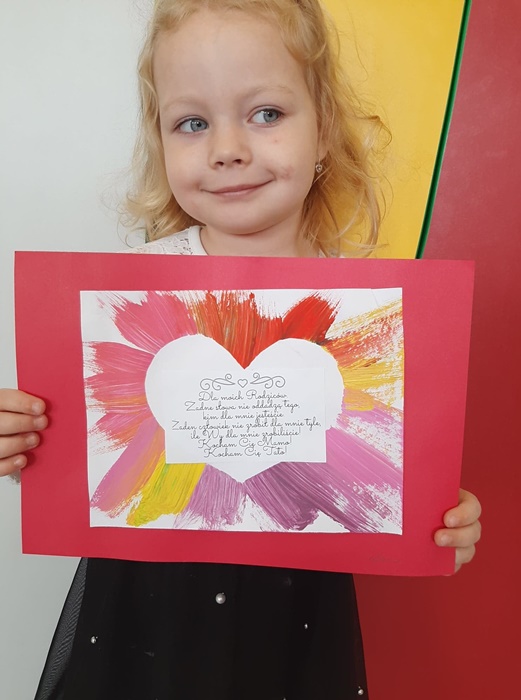 Dla moich Rodziców.
Żadne słowa nie oddadzą tego,
kim dla mnie jesteście.
Żaden człowiek nie zrobił dla mnie tyle,
ile Wy dla mnie zrobiliście!
Kocham Cię Mamo!
Kocham Cię Tato!